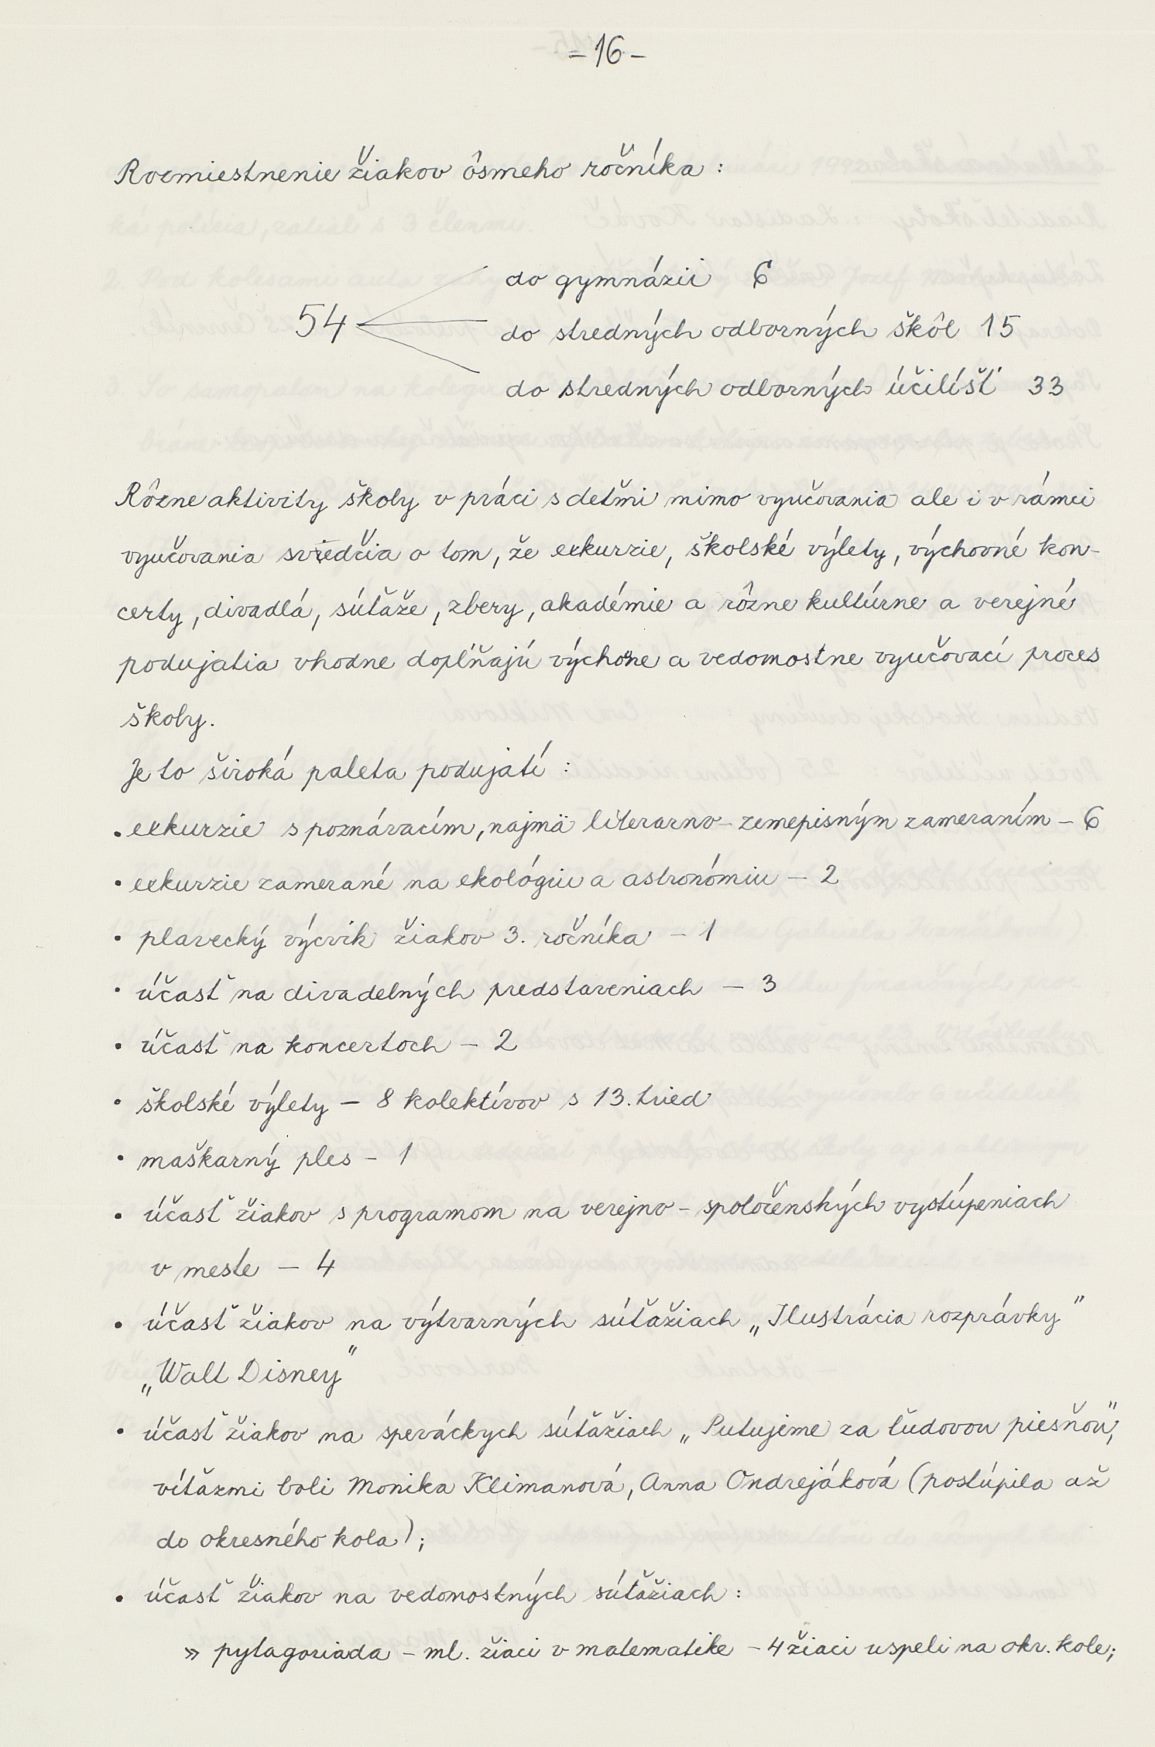 - 16 -
Rozmiestnenie žiakov ôsmeho ročníka :
do gymnázii 6
54 do stredných odborných škôl 15
do stredných odborných účilíšť 33
Rôzne aktivity školy v práci s deťmi mimo vyučovania ale i v rámci
vyučovania svedčia o tom, že exkurzie, školské výlety, výchovné kon-
certy, divadlá, súťaže, zbery, akadémie a rôzne kultúrne a verejné
podujatia vhodne doplňajú výchovne a vedomostne vyučovací proces
školy.
Je to široká paleta podujatí :
• exkurzie s poznávacím, najmä literarno-zemepisným zameraním - 6
• exkurzie zamerané na ekológiu a astronómiu - 2
• plavecký výcvik žiakov 3. ročníka - 1
• účasť na divadelných predstaveniach - 3
• účasť na koncertoch - 2
• školské výlety - 8 kolektívov s 13. tried
• maškarný ples - 1
• účasť žiakov s programom na verejno-spoločenských vystúpeniach
v meste - 4
• účasť žiakov na výtvarných súťažiach „Ilustrácia rozprávky"
„Walt Disney"
• účasť žiakov na speváckych súťažiach „Putujeme za ľudovou piesňou",
víťazmi boli Monika Klimanová, Anna Ondrejáková (postúpila až
do okresného kola);
• účasť žiakov na vedomostných súťažiach :
» pytagoriada - ml. žiaci v matematike - 4 žiaci uspeli na okr. kole;